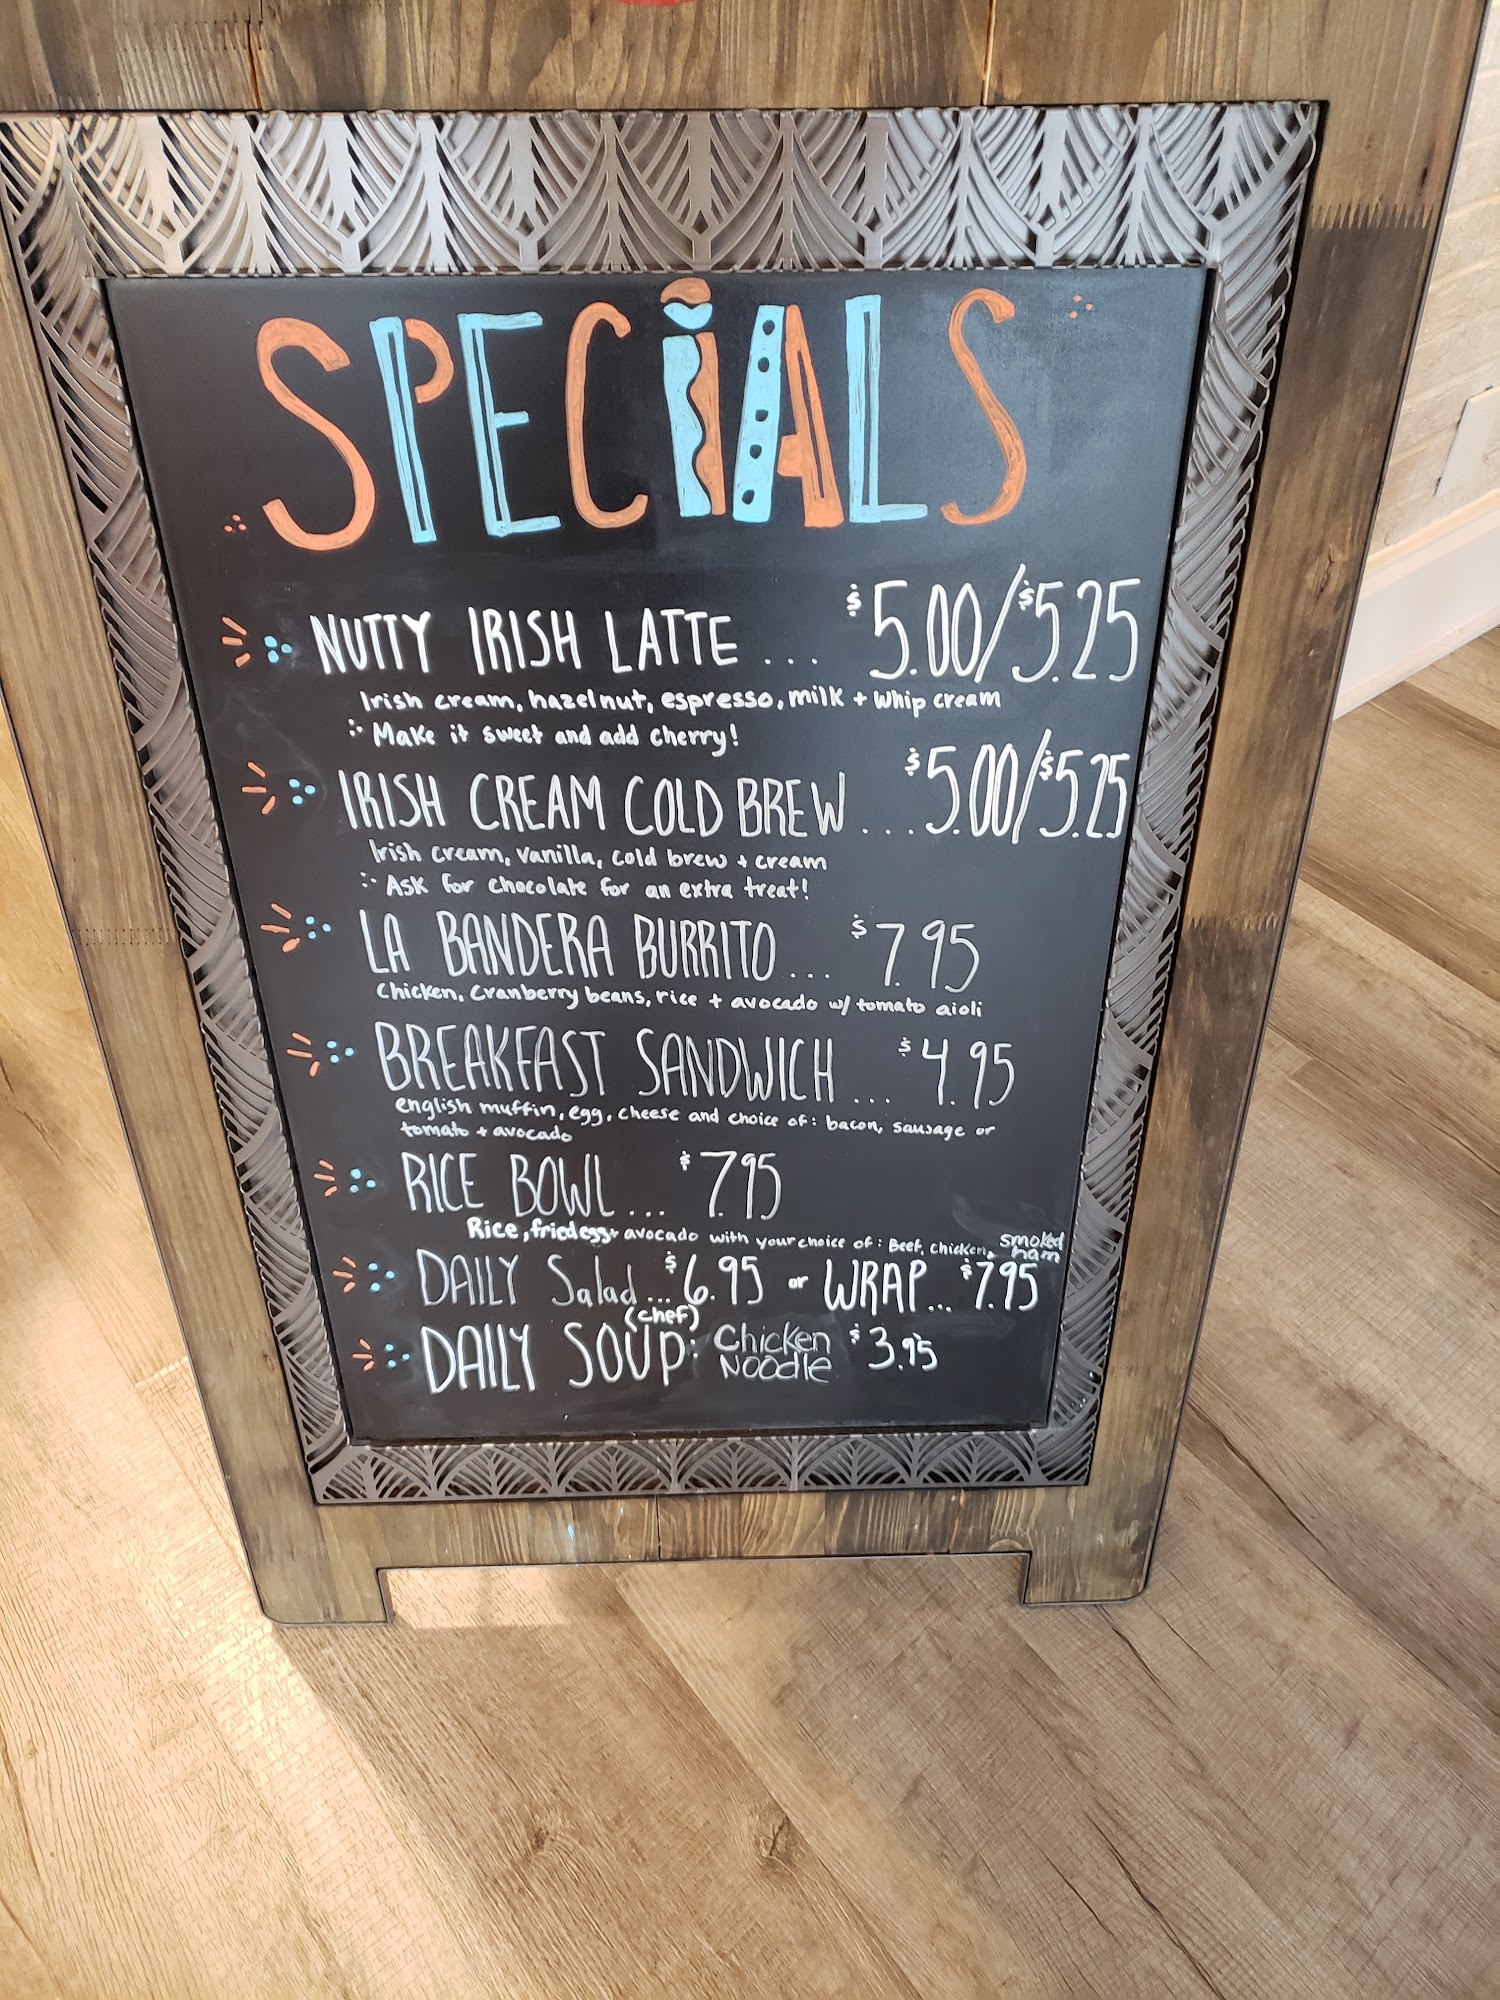 SPECIALS
NUTTY IRISH LATTE ... $5.00/$5.25
Irish cream, hazelnut, espresso, milk + whip cream
Make it sweet and add cherry!
IRISH CREAM COLD BREW ... $5.00/$5.25
Irish cream, vanilla, cold brew + cream
Ask for chocolate for an extra treat!
LA BANDERA BURRITO ... $7.95
Chicken, Cranberry beans, rice + avocado w/ tomato aioli
BREAKFAST SANDWICH ... $4.95
english muffin, egg, cheese and choice of: bacon, sausage or
tomato + avocado
RICE BOWL ... $7.95
Rice, fried egg + avocado with your choice of: Beef, chicken, smoked ham
DAILY Salad ... $6.95 or WRAP... $7.95
(chef)
DAILY SOUP: Chicken Noodle $3.95